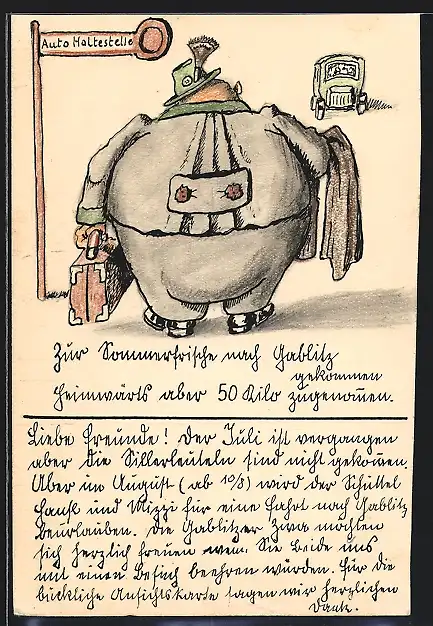 Auto Haltestelle
Zur Sommerfrische nach Gablitz
gekommen
Heimwärts aber 50 Kilo zugenom̅en.
Liebe Freunde! Der Juli ist vergangen
aber die Sillerleuteln sind nicht gekom̅en.
Aber im August (ab 10/8) wird der Schüttel
Hansl und Mizzi für eine Fahrt nach Gablitz
beurlauben. Die Gablitzer Zwa möchten
sich herzlich freuen wenn Sie beide uns
mit einen Besuch beehren würden. Für die
bückliche Ansichtskarte sagen wir herzlichen
Dank.